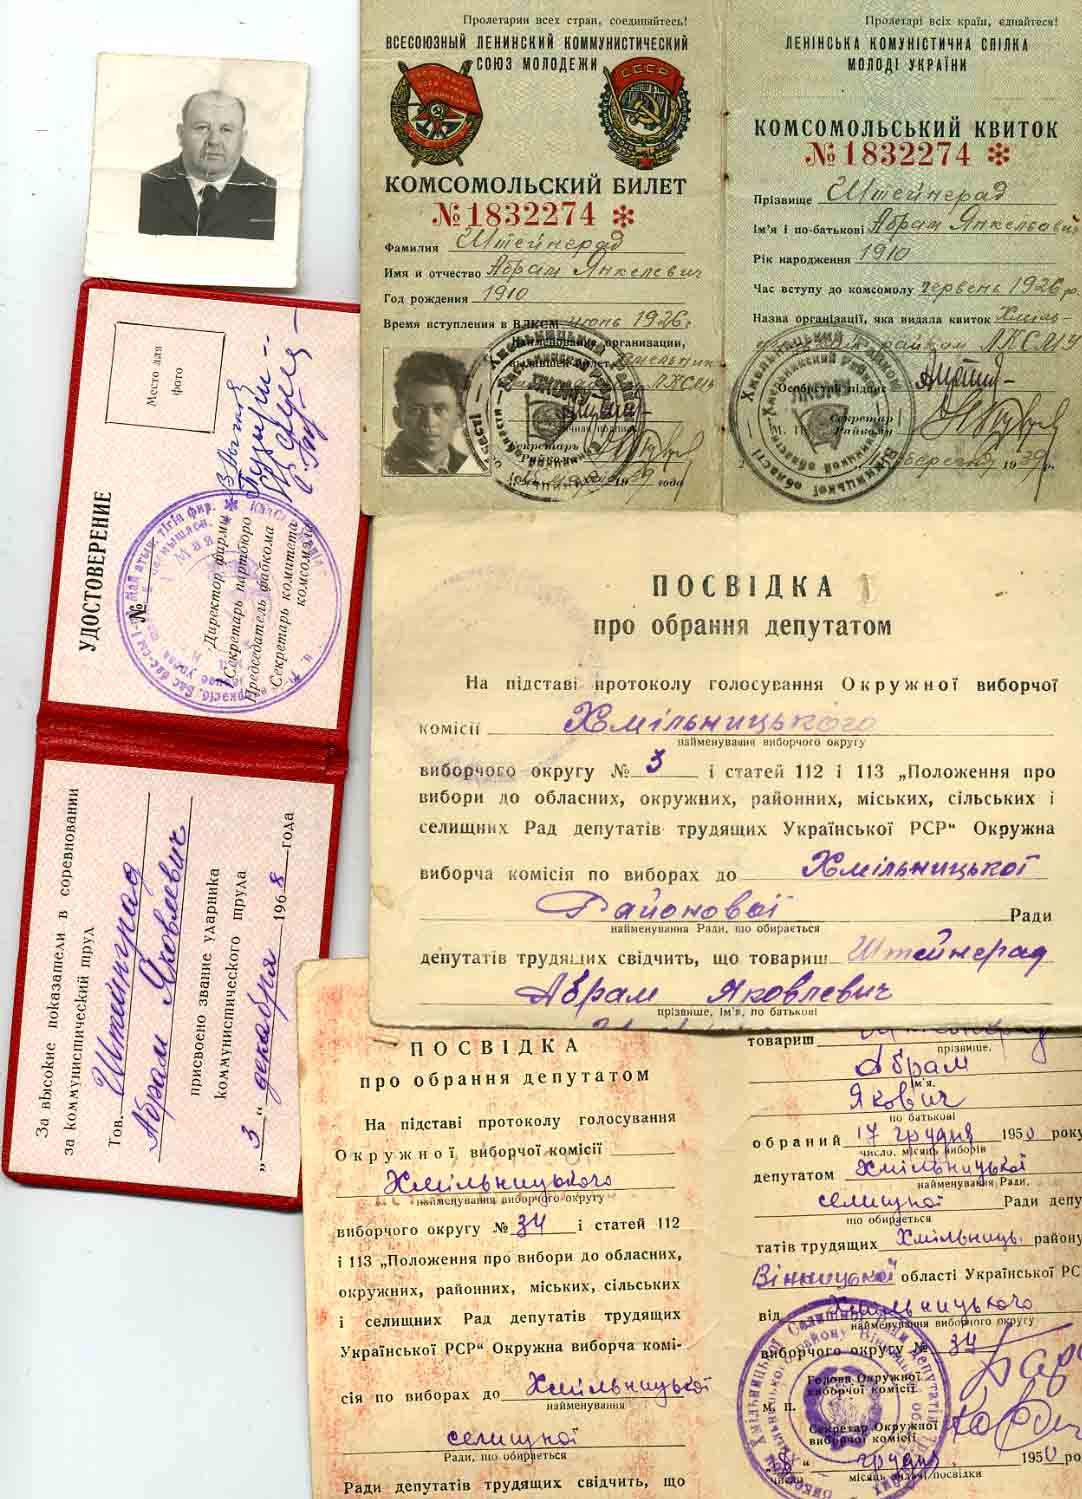 Пролетарии всех стран, соединяйтесь!
ВСЕСОЮЗНЫЙ ЛЕНИНСКИЙ КОММУНИСТИЧЕСКИЙ
СОЮЗ МОЛОДЕЖИ
СССР
КОМСОМОЛЬСКИЙ БИЛЕТ
№1832274 *
Фамилия Штейнград
Имя и отчество Абрам Янкелевич
Год рождения 1910
Время вступления в ВЛКСМ июнь 1926 г
Наименование организации,
выдавшей билет
Секретарь
Райкома
Пролетарі всіх країн, єднайтеся!
ЛЕНІНСЬКА КОМУНІСТИЧНА СПІЛКА
МОЛОДІ УКРАЇНИ
КОМСОМОЛЬСЬКИЙ КВИТОК
№1832274 *
Прізвище Штейнград
Ім'я і по-батькові Абрам Янкельович
Рік народження 1910
Час вступу до комсомолу червень 1926 р.
Назва організації, яка видала квиток Хміль-
райком ЛКСМУ
Особистий підпис
Секретар
М. П. Райкому
1939 р.
УДОСТОВЕРЕНИЕ
№
Место для
фото
Директор фирмы
Секретарь партбюро
Председатель фабкома
Секретарь комитета
комсомола
За высокие показатели в соревновании
за коммунистический труд
Тов. Штейнград
Абрам Яковлевич
присвоено звание ударника
коммунистического труда
„3“ декабря 1968 года
ПОСВІДКА
про обрання депутатом
На підставі протоколу голосування Окружної виборчої
комісії Хмільницького
найменування виборчого округу
виборчого округу № 3 і статей 112 і 113 „Положення про
вибори до обласних, окружних, районних, міських, сільських і
селищних Рад депутатів трудящих Української РСР“ Окружна
виборча комісія по виборах до Хмільницької
Районової Ради
найменування Ради, що обирається
депутатів трудящих свідчить, що товариш Штейнград
Абрам Яковлевич
прізвище, ім'я, по батькові
ПОСВІДКА
про обрання депутатом
На підставі протоколу голосування
Окружної виборчої комісії
Хмільницького
найменування виборчого округу
виборчого округу № 34 і статей 112
і 113 „Положення про вибори до обласних,
окружних, районних, міських, сільських
і селищних Рад депутатів трудящих
Української РСР“ Окружна виборча комі-
сія по виборах до Хмільницької
найменування
селищної
Ради, що обирається
Ради депутатів трудящих свідчить, що
товариш
прізвище.
Абрам
ім'я.
Якович
по батькові
обраний 17 грудня 1950 року
число, місяць виборів
депутатом Хмільницької
найменування Ради.
селищної Ради депу-
що обирається
татів трудящих Хмільниць. району
Вінницької області Української РС
від Хмільницького
найменування виборчого округу
виборчого округу № 34
Голова Окружної
виборчої комісії
м. п.
Секретар Окружної
виборчої комісії
грудня 1950 ро
число місяць видачі посвідки